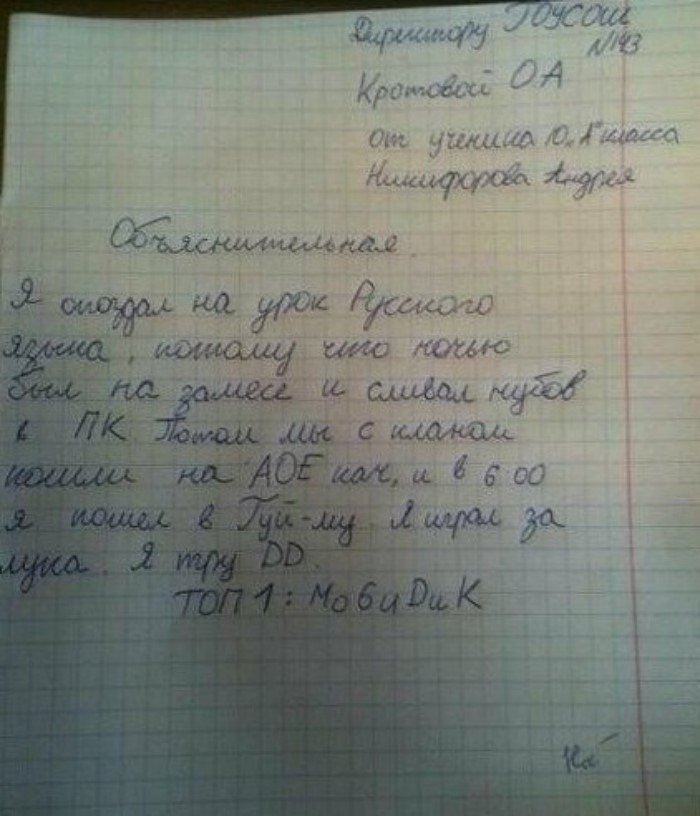 Директору ГОУСОШ
N143
Кротовой ОА
от ученика 10 „А" класса
Никифорова Андрея
Объяснительная.
Я опоздал на урок Русского
языка, потому что ночью
был на замесе и сливал нубов
в ПК Потом мы с кланом
пошли на АОЕ кач, и в 6 00
я пошел в Гуй-му. Я играл за
лука. Я тру DD.
ТОП 1: МоБиDиК